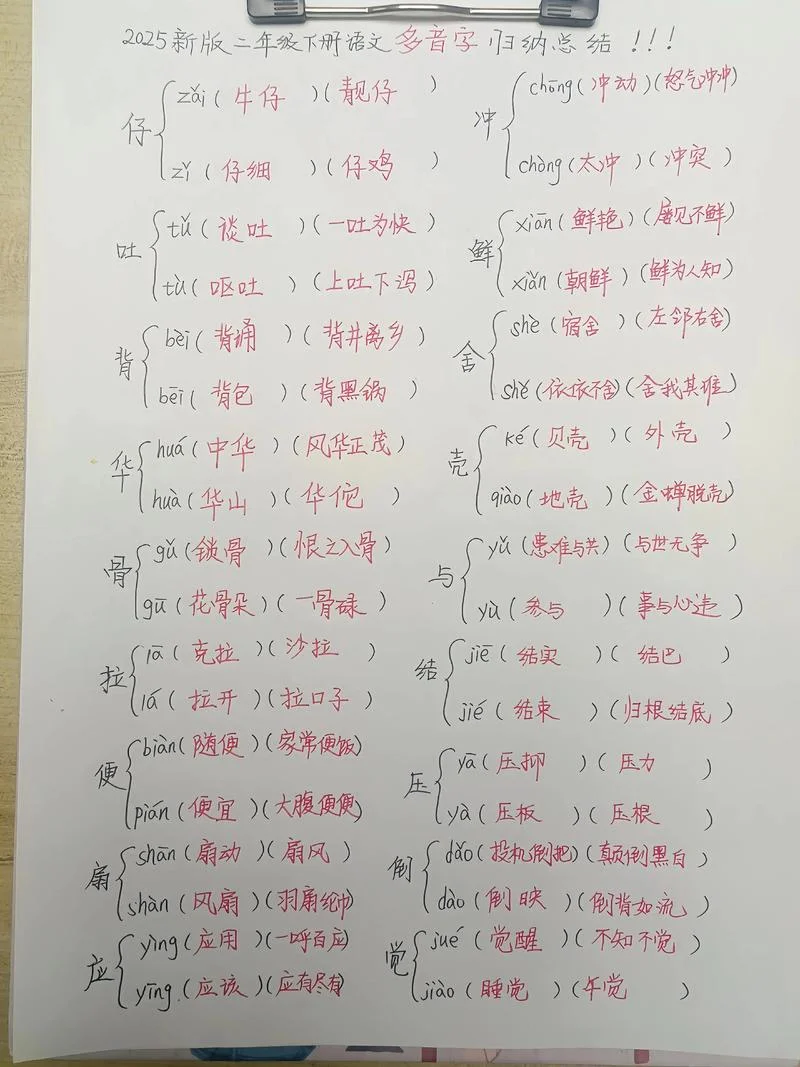 2025新版二年级下册语文多音字归纳总结!!!
仔
zǎi(牛仔)(靓仔)
zǐ(仔细)(仔鸡)
吐
tǔ(谈吐)(一吐为快)
tù(呕吐)(上吐下泻)
背
bèi(背诵)(背井离乡)
bēi(背包)(背黑锅)
华
huá(中华)(风华正茂)
huà(华山)(华佗)
骨
gǔ(锁骨)(恨之入骨)
gū(花骨朵)(一骨碌)
拉
lā(克拉)(沙拉)
lá(拉开)(拉口子)
便
biàn(随便)(家常便饭)
pián(便宜)(大腹便便)
扇
shān(扇动)(扇风)
shàn(风扇)(羽扇纶巾)
应
yìng(应用)(一呼百应)
yīng(应该)(应有尽有)
冲
chōng(冲动)(怒气冲冲)
chòng(太冲)(冲突)
鲜
xiān(鲜艳)(屡见不鲜)
xiǎn(朝鲜)(鲜为人知)
舍
shè(宿舍)(左邻右舍)
shě(依依不舍)(舍我其谁)
壳
ké(贝壳)(外壳)
qiào(地壳)(金蝉脱壳)
与
yǔ(患难与共)(与世无争)
yù(参与)(事与心违)
结
jiē(结实)(结巴)
jié(结束)(归根结底)
压
yā(压抑)(压力)
yà(压板)(压根)
倒
dǎo(投机倒把)(颠倒黑白)
dào(倒映)(倒背如流)
觉
jué(觉醒)(不知不觉)
jiào(睡觉)(午觉)